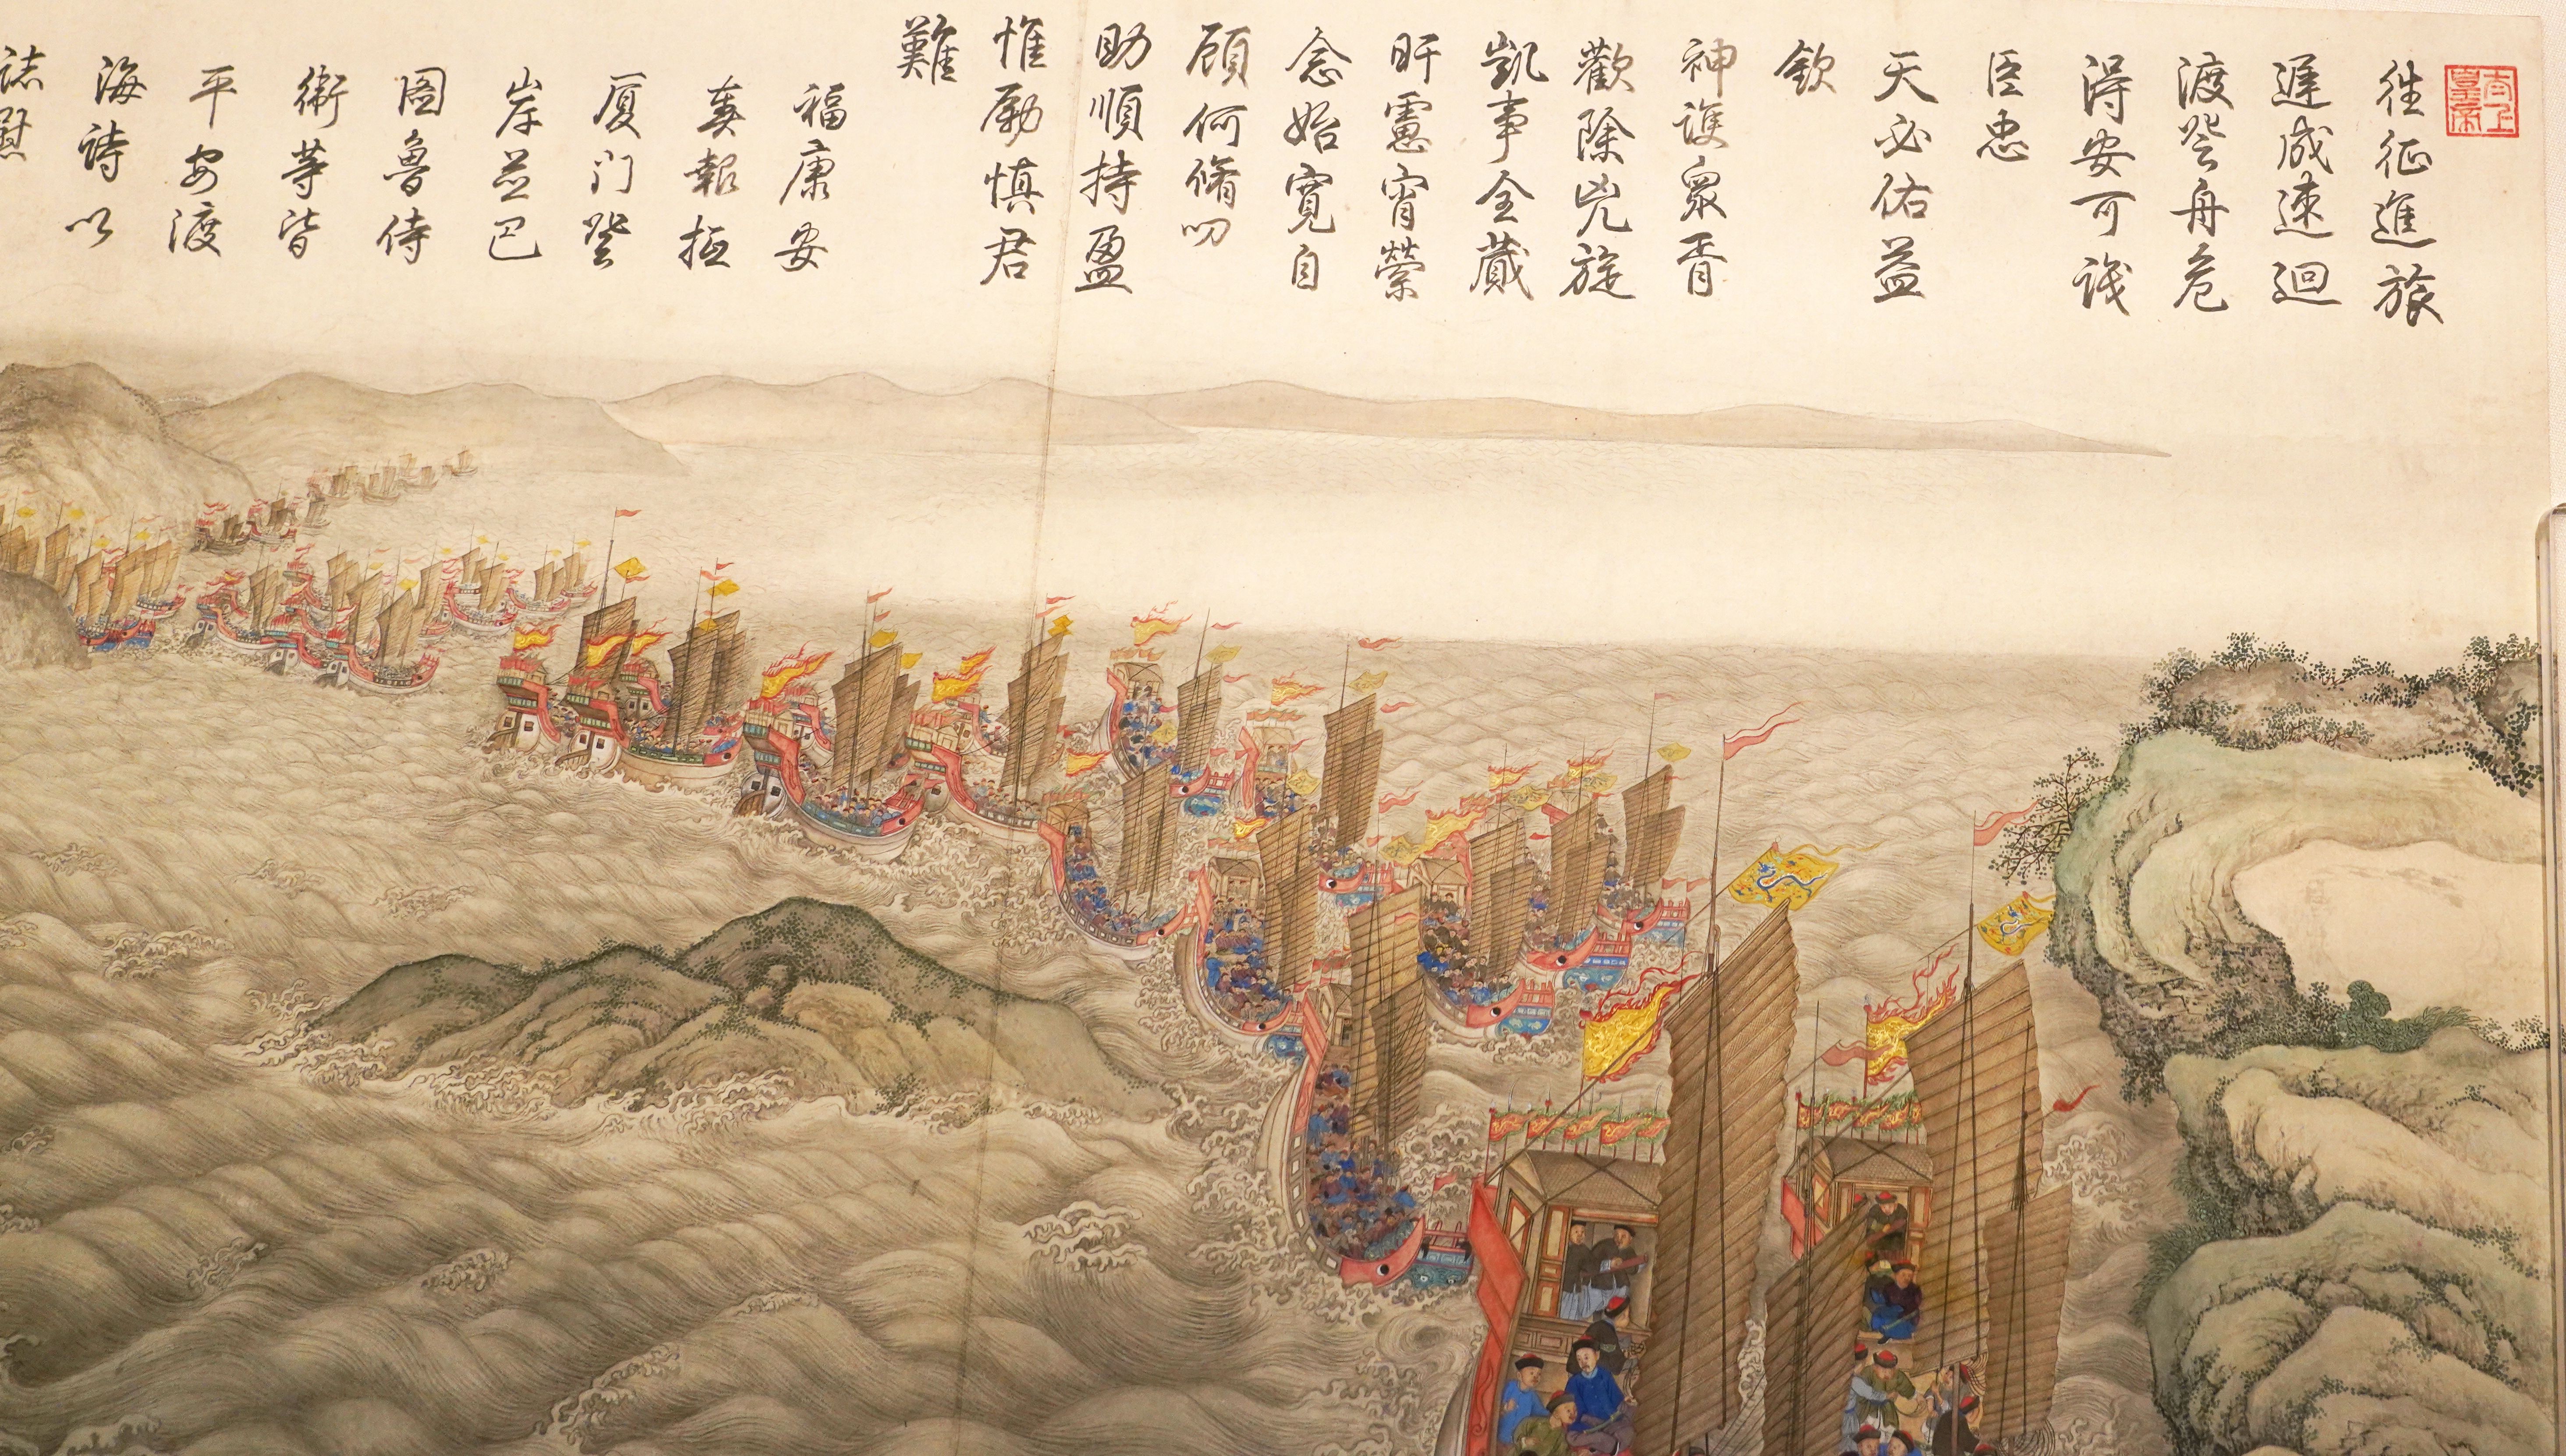 太上皇帝
往征進旅
遲成速迴
渡登舟危
淂安可識
臣忠
天必佑益
欽
神護眾胥
歡除兇旋
凱事全蕆
旰慮宵縈
念始寬自
顧何脩叨
助順持盈
惟勵慎君
難
福康安
奏報抵
厦门登
岸並巴
圖魯侍
衛等皆
平安渡
海詩以
誌慰